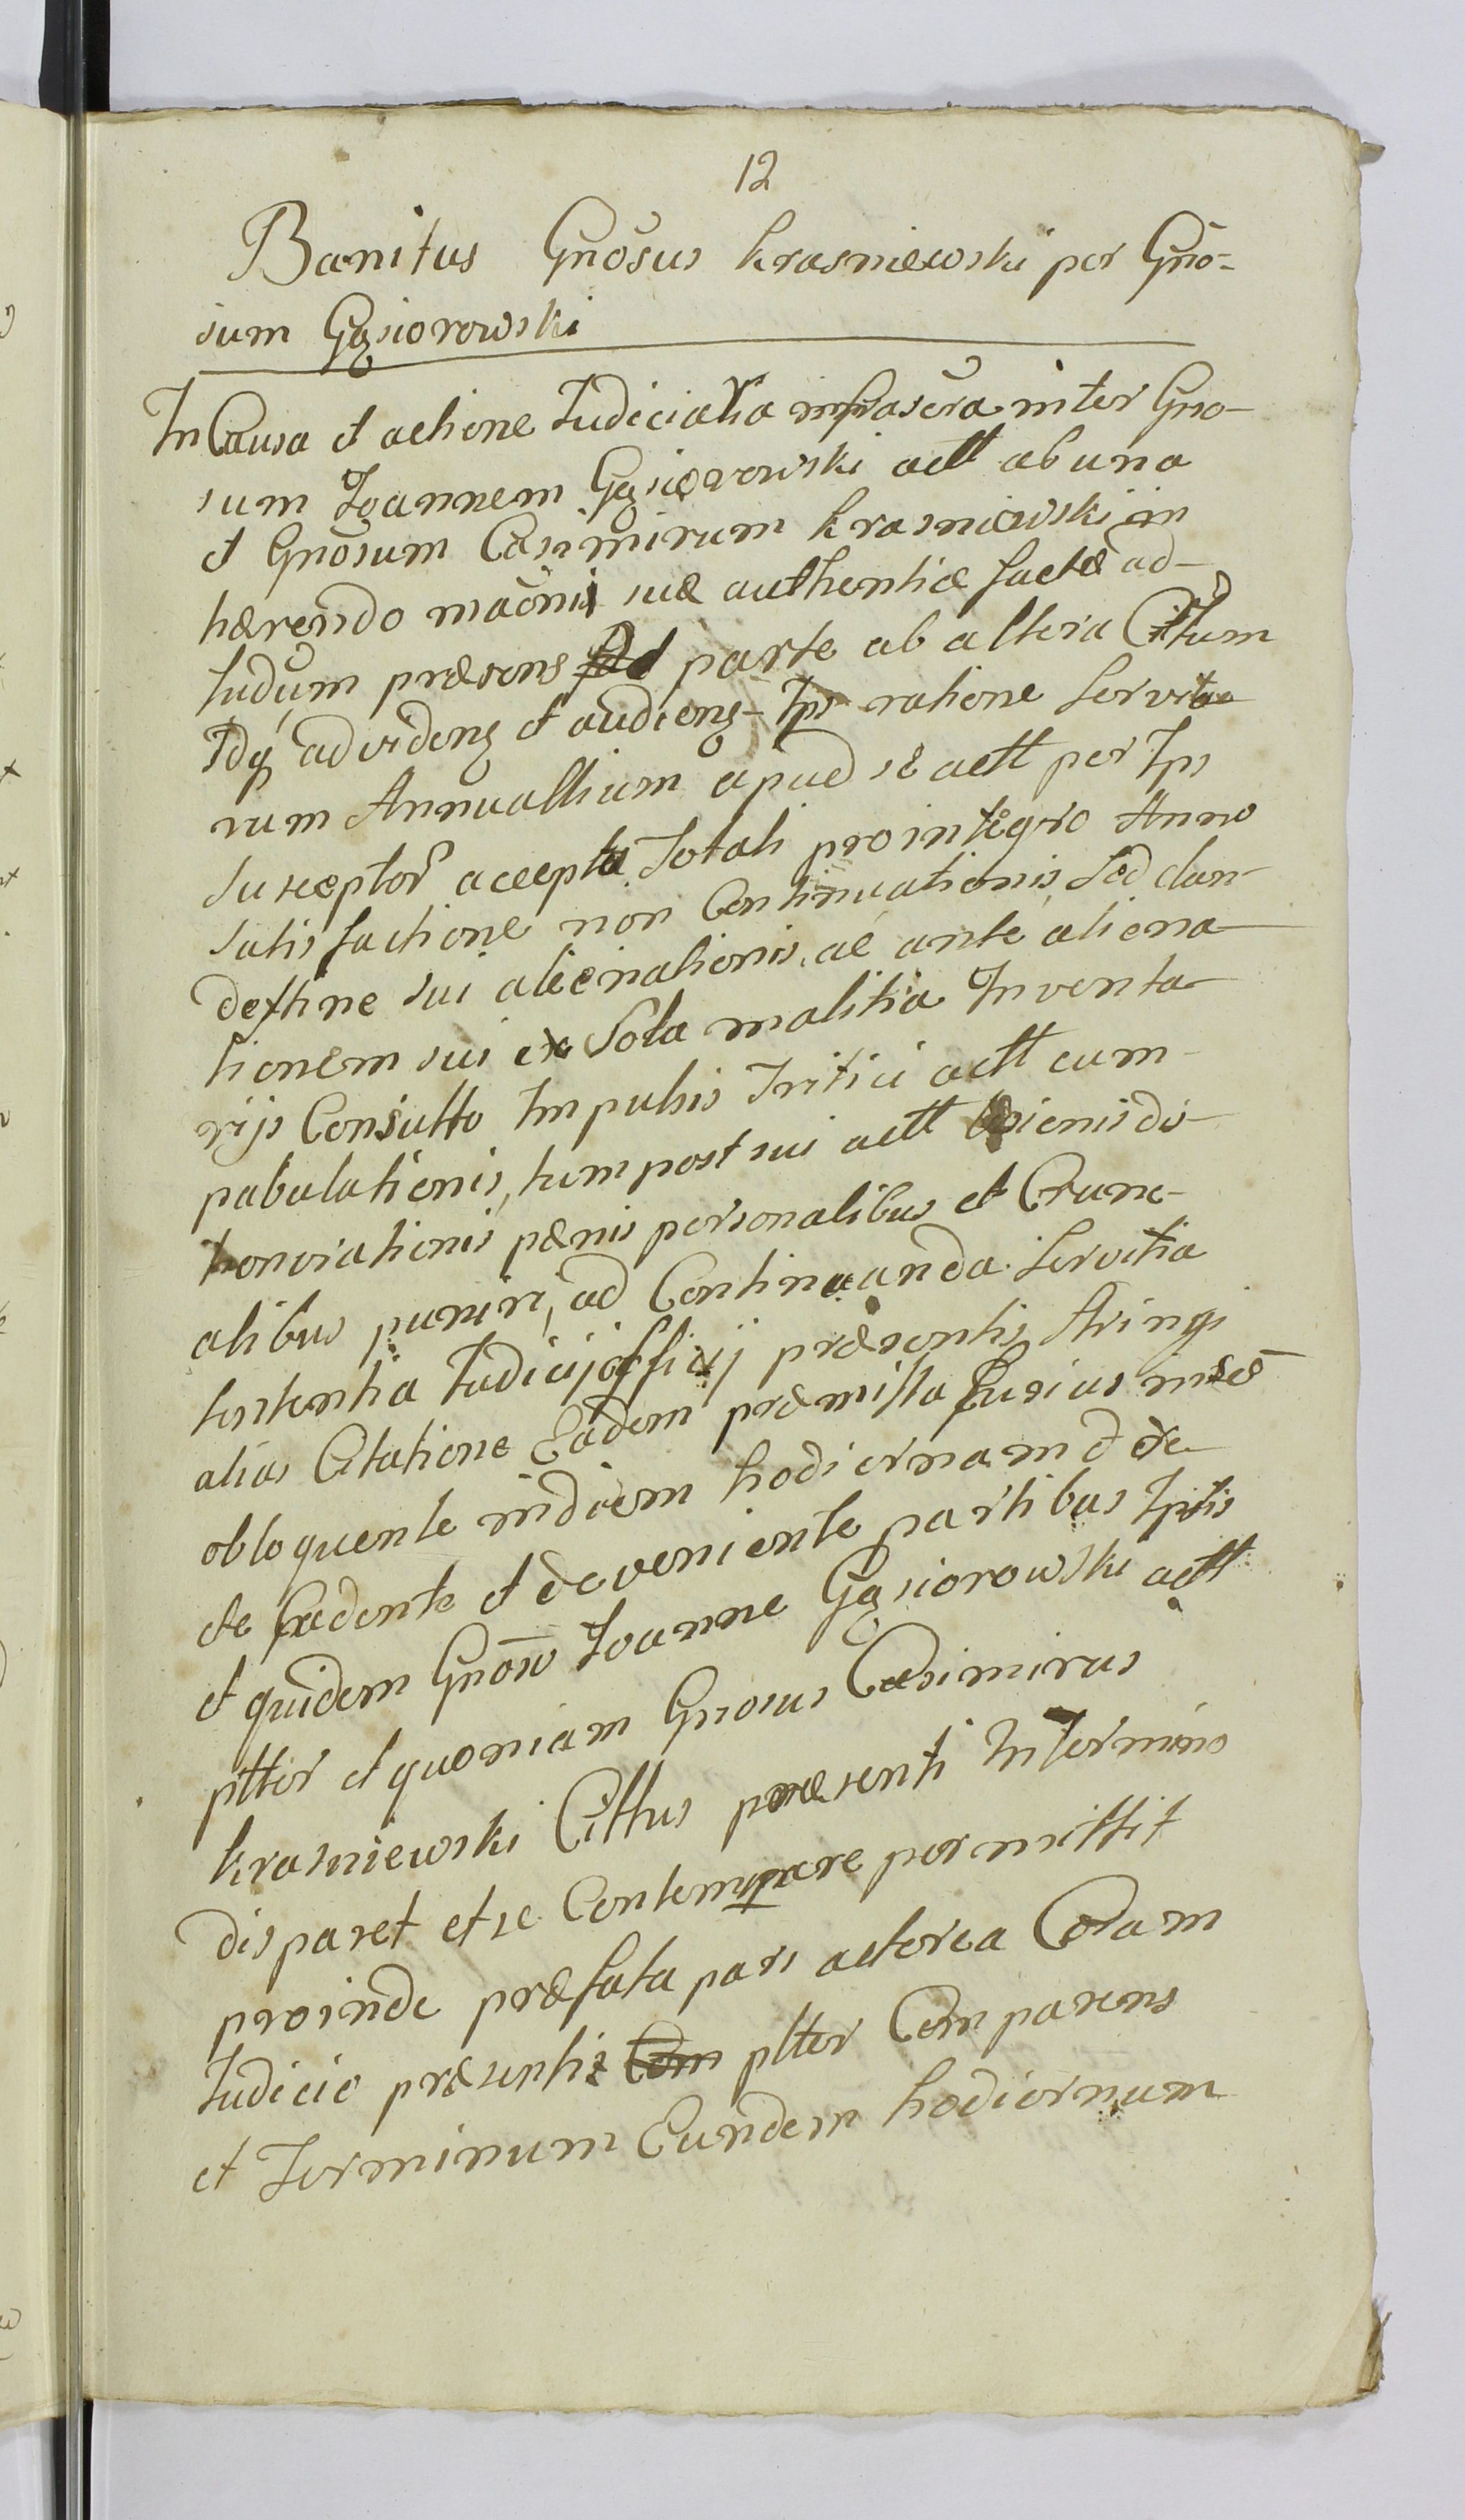 12
Banitus Gnosus Krasniewski per Gno-
sum Gąsiorowski
In Causa et actione Judiciaria infrascra inter Gno-
sum Joannem Gąsiorowski actt ab una
et Gnosum Casimirum Krasniewski in
hærendo maōni suæ authenticæ factæ ad
Judum præsens parte ab altera Cittum
Idq ad videng et audieng Ips ratione Servitio
rum Annualium apud se actt per Ips
Susceptor accepta Totali pro integro Anno
Satisfactione non Continuationis Sed clan-
destine sui alienationis, ac ante aliena
tionem sui ex Sola malitia Inventa
rijs Consulto Impulsis Tritici actt cum
pabulationis, tum post sui actt
honorationis pænis personalibus et
alibus puniri, ad Continuanda Servitia
Sententia Judicij officij præsentis Stringi
alias Citatione Eadem præmissa fusius in se
obloquente in diem hodiernam
de Cadente et deveniente partibus Iptis
et quidem Gnoso Joanne Gąsiorowski actt
pltter et quoniam Gnosus Casimirus
Krasniewski Cittus præsenti In Termino
disparet et se Contemnare permittit
proinde præfata pars actorea Coram
Judicio præsenti pltter Comparens
et Terminum Eundem hodiernum